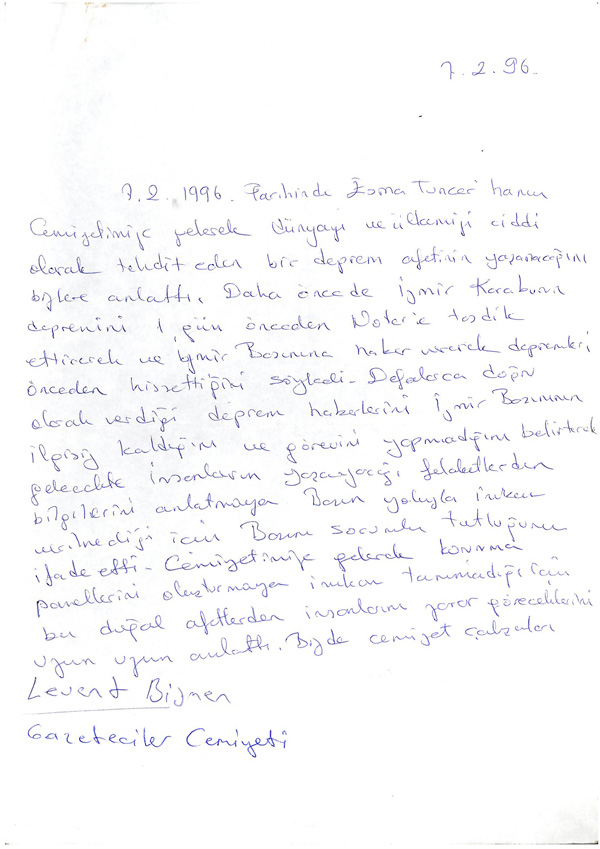 7.2.96.
7.2.1996. Tarihinde Esma Tuncer hanım
Cemiyetimize gelerek dünyayı ve ülkemizi ciddi
olarak tehdit eden bir deprem afetinin yaşanacağını
bizlere anlattı. Daha önce de İzmir Karaburun
depremini 1 gün önceden Noterle tasdik
ettirerek ve İzmir Basınına haber vererek depremleri
önceden hissettiğini söyledi. Defalarca doğru
olarak verdiği deprem haberlerini İzmir Basınının
ilgisiz kaldığını ve görevini yapmadığını belirterek
gelecekte insanların yaşayacağı felaketlerden
bilgilerini anlatmaya Basın yoluyla imkan
verilmediği için Basını sorumlu tuttuğunu
ifade etti. Cemiyetimize gelerek korunma
panellerini oluşturmaya imkan tanımadığı için
bu doğal afetlerden insanların zarar göreceklerini
uzun uzun anlattı. Bizde cemiyet
Levent Bijmen
Gazeteciler Cemiyeti